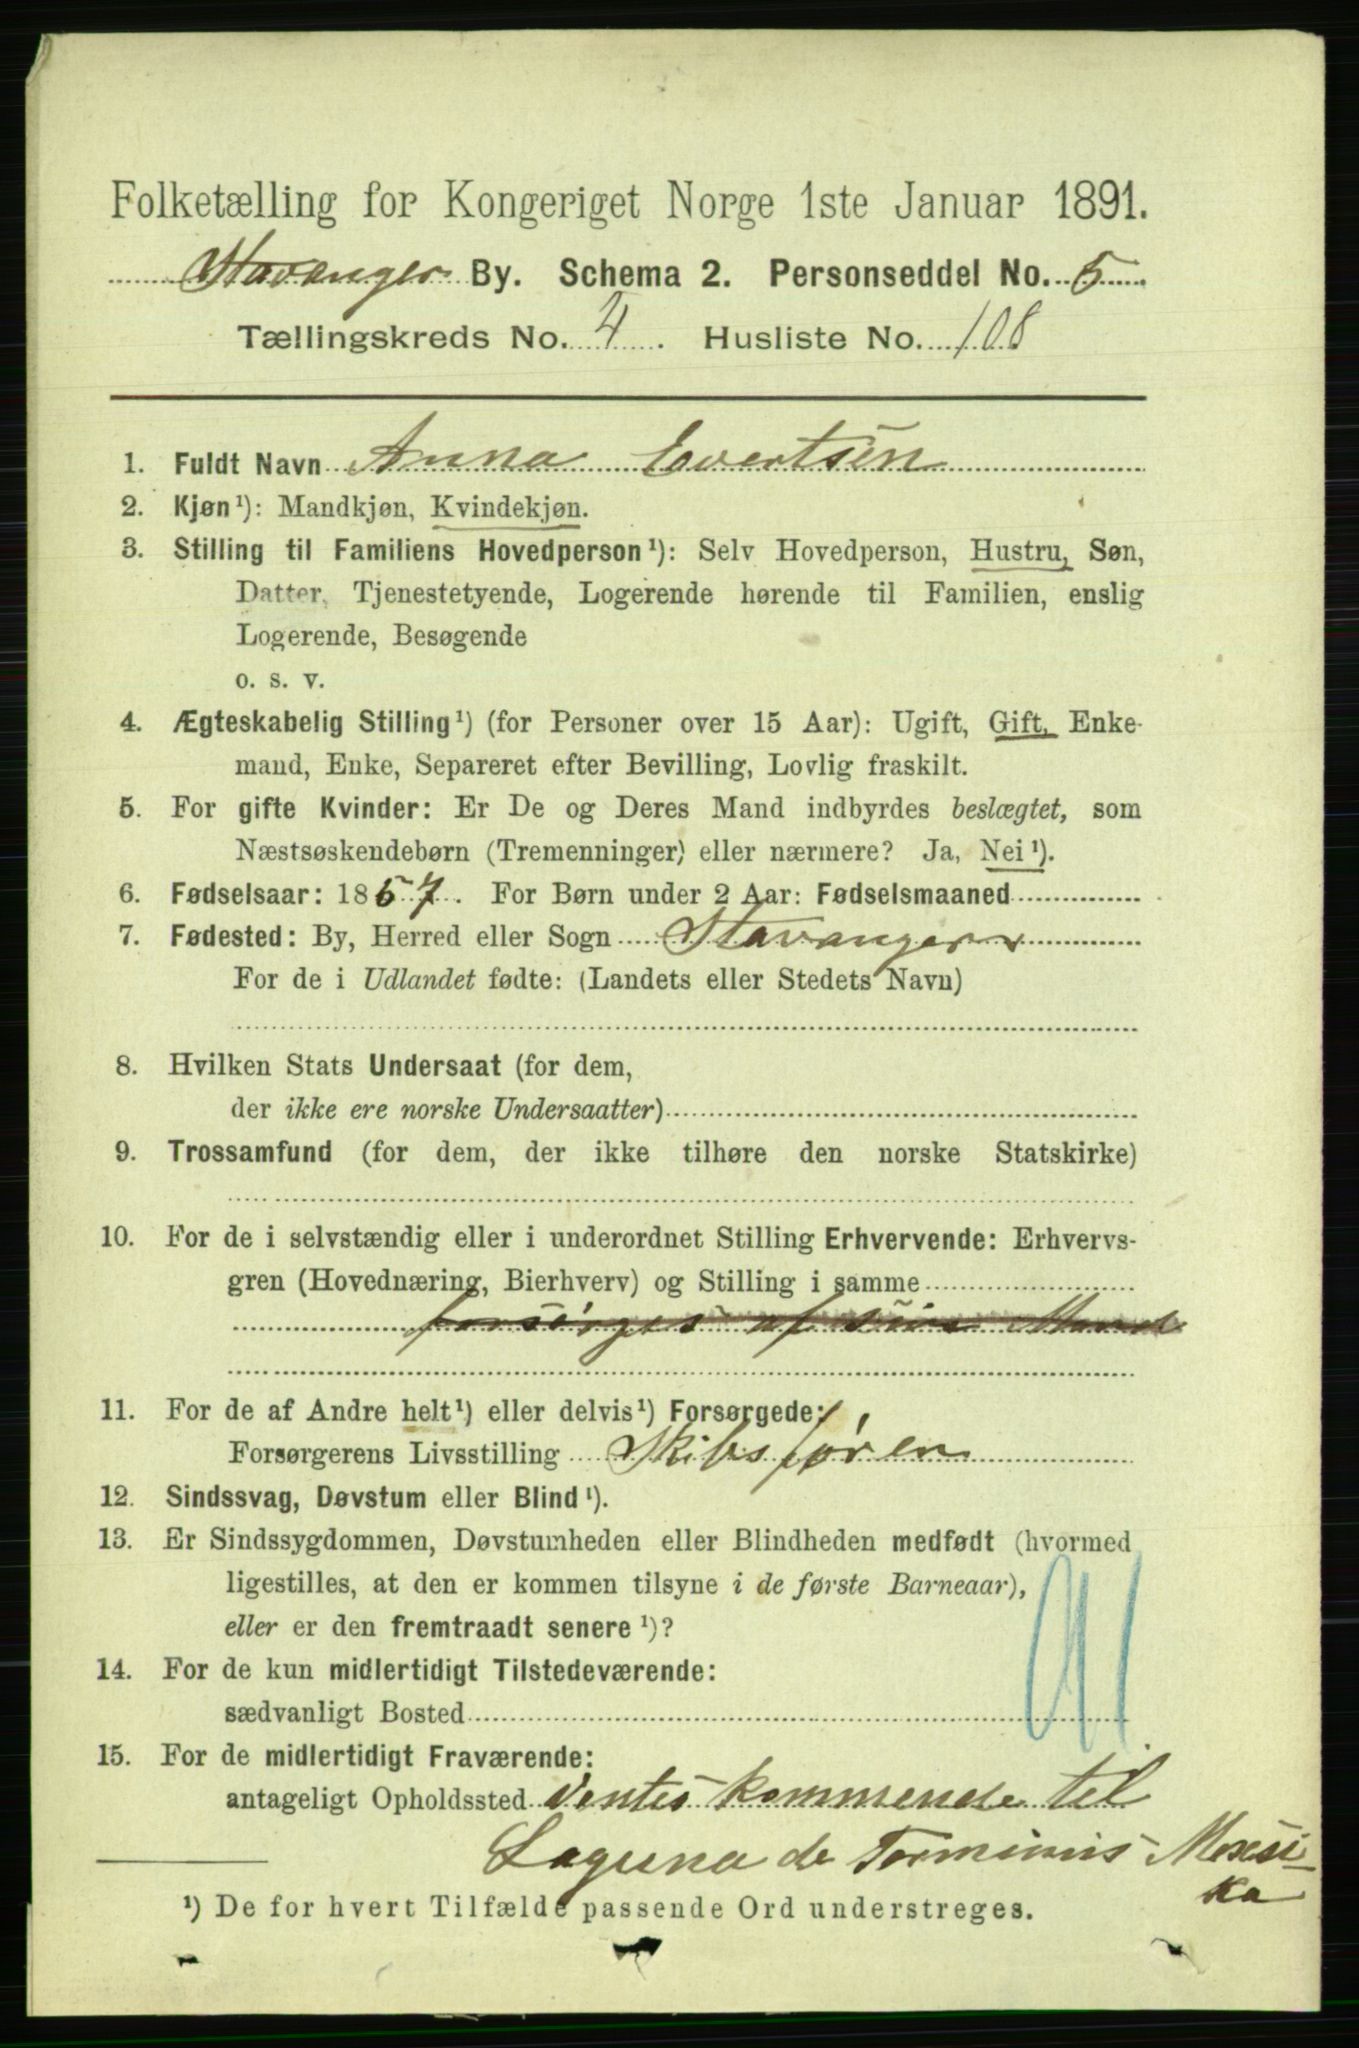 Folketælling for Kongeriget Norge 1ste Januar 1891.
Stavanger By. Schema 2. Personseddel No. 5
Tællingskreds No. 4. Husliste No. 108
1. Fuldt Navn Anna Evertsen
2. Kjøn¹): Mandkjøn, Kvindekjøn.
3. Stilling til Familiens Hovedperson¹): Selv Hovedperson, Hustru, Søn,
Datter, Tjenestetyende, Logerende hørende til Familien, enslig
Logerende, Besøgende
o. s. v.
4. Ægteskabelig Stilling¹) (for Personer over 15 Aar): Ugift, Gift, Enke-
mand, Enke, Separeret efter Bevilling, Lovlig fraskilt.
5. For gifte Kvinder: Er De og Deres Mand indbyrdes beslægtet, som
Næstsøskendebørn (Tremenninger) eller nærmere? Ja, Nei¹).
6. Fødselsaar: 1857. For Børn under 2 Aar: Fødselsmaaned
7. Fødested: By, Herred eller Sogn Stavanger
For de i Udlandet fødte: (Landets eller Stedets Navn)
8. Hvilken Stats Undersaat (for dem,
der ikke ere norske Undersaatter)
9. Trossamfund (for dem, der ikke tilhøre den norske Statskirke)
10. For de i selvstændig eller i underordnet Stilling Erhvervende: Erhvervs-
gren (Hovednæring, Bierhverv) og Stilling i samme
forsørges af sin Mand
11. For de af Andre helt¹) eller delvis¹) Forsørgede:
Forsørgerens Livsstilling Skibsfører
12. Sindssvag, Døvstum eller Blind¹).
13. Er Sindssygdommen, Døvstumheden eller Blindheden medfødt (hvormed
ligestilles, at den er kommen tilsyne i de første Barneaar),
eller er den fremtraadt senere¹)?
14. For de kun midlertidigt Tilstedeværende:
sædvanligt Bosted
91
15. For de midlertidigt Fraværende:
antageligt Opholdssted Ventes kommende til
Laguna de Terminis Mexsi-
ka
¹) De for hvert Tilfælde passende Ord understreges.